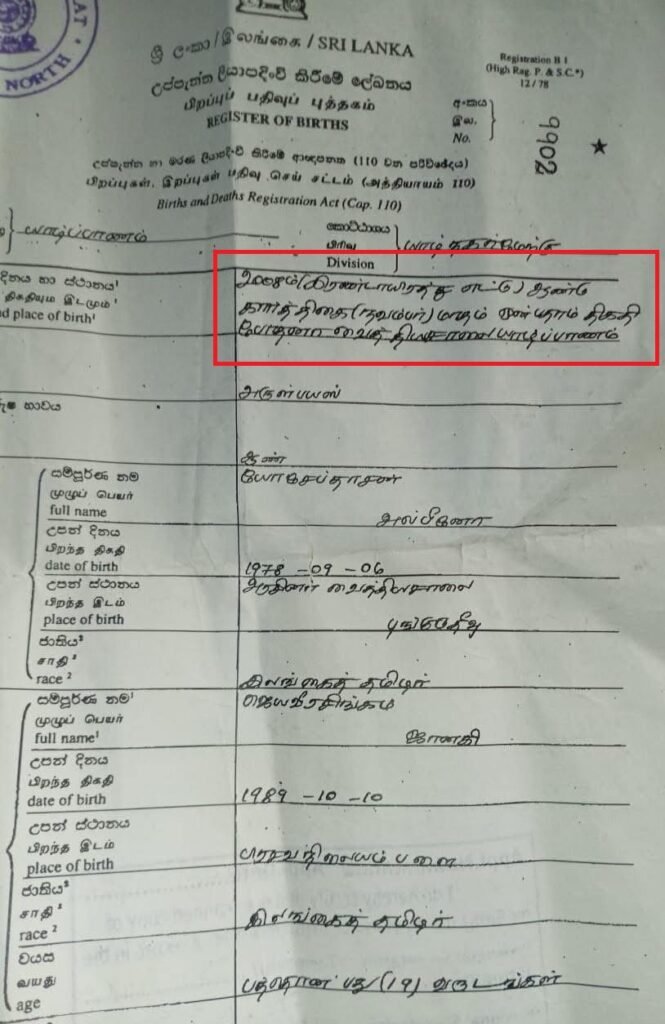 NORTH
ශ්‍රී ලංකා / இலங்கை / SRI LANKA
Registration B 1
(High Rag. P. & S.C.*)
12 / 78
උප්පැන්න ලියාපදිංචි කිරීමේ ලේඛනය
பிறப்புப் பதிவுப் புத்தகம்
REGISTER OF BIRTHS
අංකය
இல.
No.
9902
උප්පැන්න හා මරණ ලියාපදිංචි කිරීමේ ආඥාපනත (110 වන පරිච්ඡේදය)
பிறப்புகள், இறப்புகள் பதிவு செய் சட்டம் (அத்தியாயம் 110)
Births and Deaths Registration Act (Cap. 110)
யாழ்ப்பாணம்
කොට්ඨාසය
பிரிவு
Division
දිනය හා ස්ථානය¹
திகதியும் இடமும்¹
d place of birth¹
2008ம் (இரண்டாயிரத்து எட்டு) ஆண்டு
கார்த்திகை (நவம்பர்) மாதம்
போதனா வைத்தியசாலை யாழ்ப்பாணம்
භාවය
ஆண்
සම්පූර්ණ නම
முழுப் பெயர்
full name
யோசேப்தாசன்
උපන් දිනය
பிறந்த திகதி
date of birth
1978 - 09 - 06
උපන් ස්ථානය
பிறந்த இடம்
place of birth
வைத்தியசாலை
ජාතිය²
சாதி²
race ²
இலங்கைத் தமிழர்
සම්පූර්ණ නම¹
முழுப் பெயர்
full name¹
ஜெயவீரசிங்கம்
ஜானகி
උපන් දිනය
பிறந்த திகதி
date of birth
1989 - 10 - 10
උපන් ස්ථානය
பிறந்த இடம்
place of birth
பிரசவநிலையம் பளை
ජාතිය²
சாதி ²
race ²
இலங்கைத் தமிழர்
වයස
வயது
age
பத்தொன்பது (19) வருடங்கள்